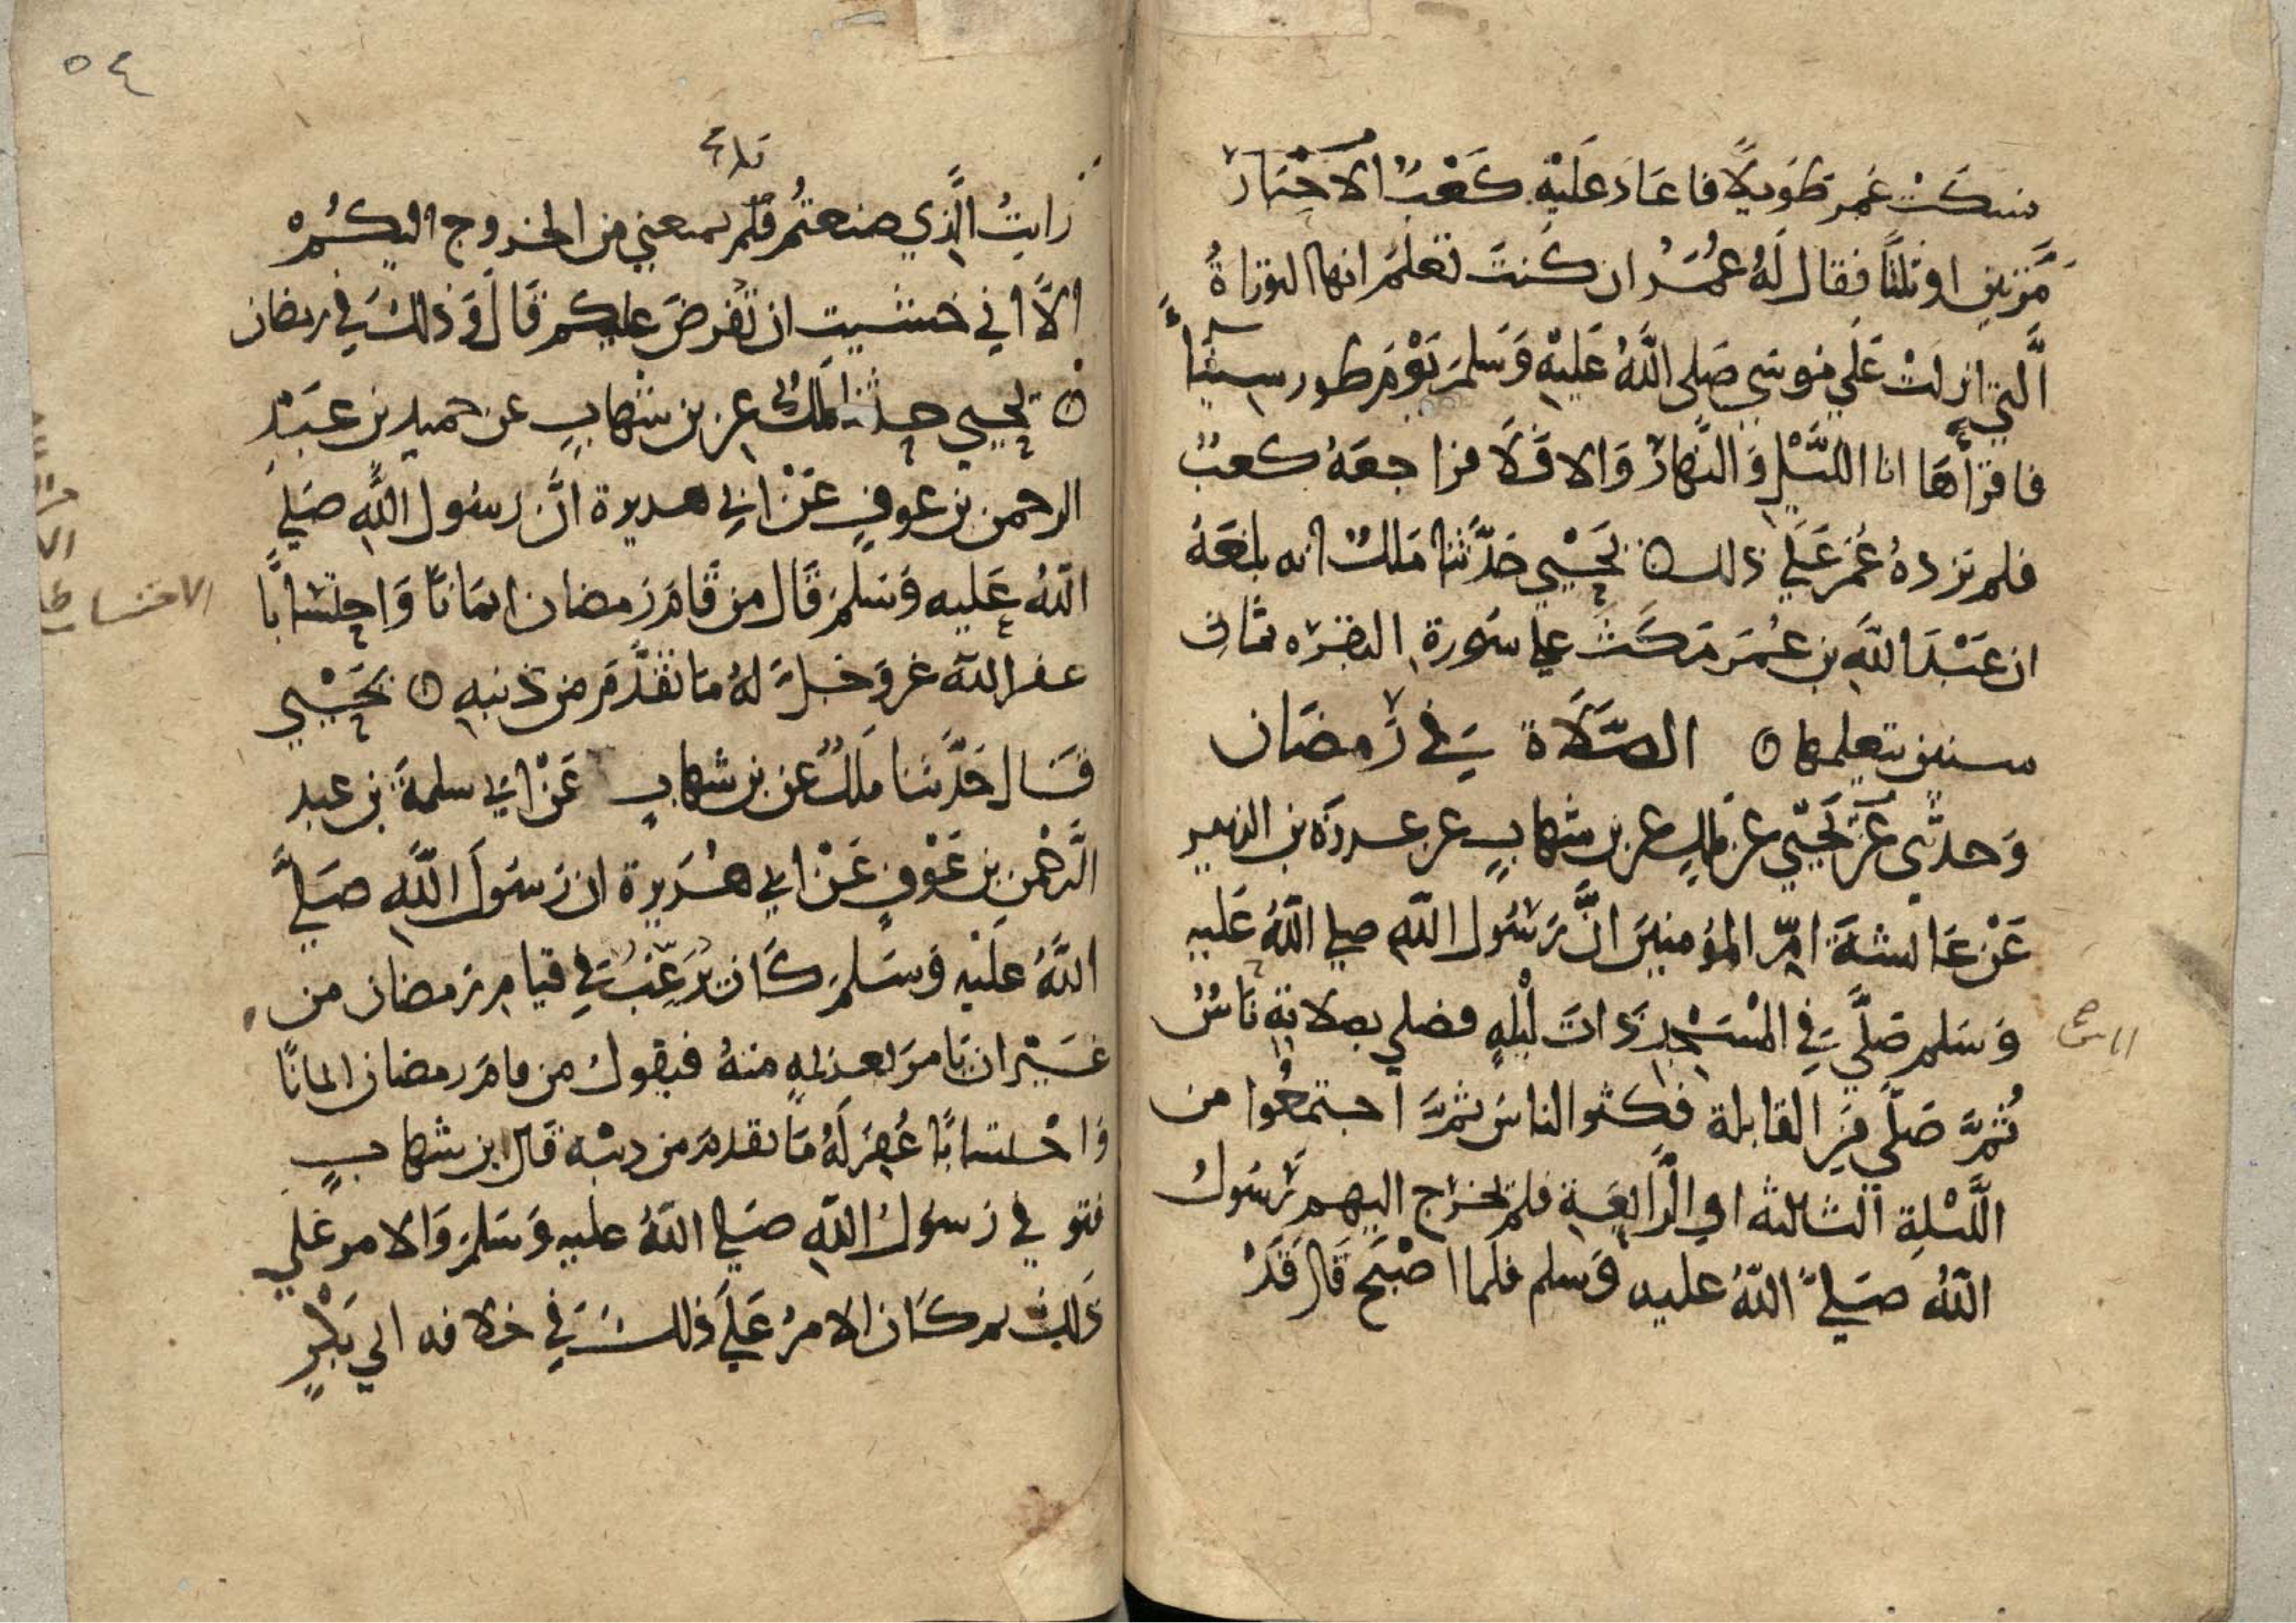 فسكت عمر طويلا فاعاد عليه كعب الاحبار
مرتين او ثلثا فقال له عمر ان كنت تعلم انها التوراة
التي انزلت على موسى صلى الله عليه وسلم يوم طور سيناء
فاقرأها انا الليل والنهار والا فلا فراجعه كعب
فلم يزده عمر على ذلك ۞ يحيي حدثنا ملك انه بلغه
ان عبد الله بن عمر مكث على سورة البقره ثمان
سنين يتعلمها ۞ الصلاة في رمضان
وحدثني عن يحيي عن ملك عن بن شهاب عن عروة بن الزبير
عن عائشة ام المؤمنين ان رسول الله صلى الله عليه
وسلم صلى في المسجد ذات ليله فصلي بصلاته ناس
ثم صلى من القابلة فكثر الناس ثم اجتمعوا من
الليلة الثالثه او الرابعة فلم يخرج اليهم رسول
الله صلى الله عليه وسلم فلما اصبح قال قد
الناس
٥٤
رايت الذي صنعتم فلم يمنعني من الخروج اليكم
الا اني خشيت ان تفرض عليكم قال وذلك في رمضان
۞ يحيي حدثنا ملك عن بن شهاب عن حميد بن عبد
الرحمن بن عوف عن ابي هريرة ان رسول الله صلى
الله عليه وسلم قال من قام رمضان ايمانا واحتسابا
غفر الله عز وجل له ما تقدم من ذنبه ۞ يحيي
قال حدثنا ملك عن بن شهاب عن ابي سلمة بن عبد
الرحمن بن عوف عن ابي هريرة ان رسول الله صلى
الله عليه وسلم كان يرغب في قيام رمضان من
غير ان يامر بعزيمه منه فيقول من قام رمضان ايمانا
واحتسابا غفر له ما تقدم من ذنبه قال ابن شهاب
فتوفي رسول الله صلى الله عليه وسلم والامر على
ذلك ثم كان الامر على ذلك في خلافه ابي بكر
الاحتساب